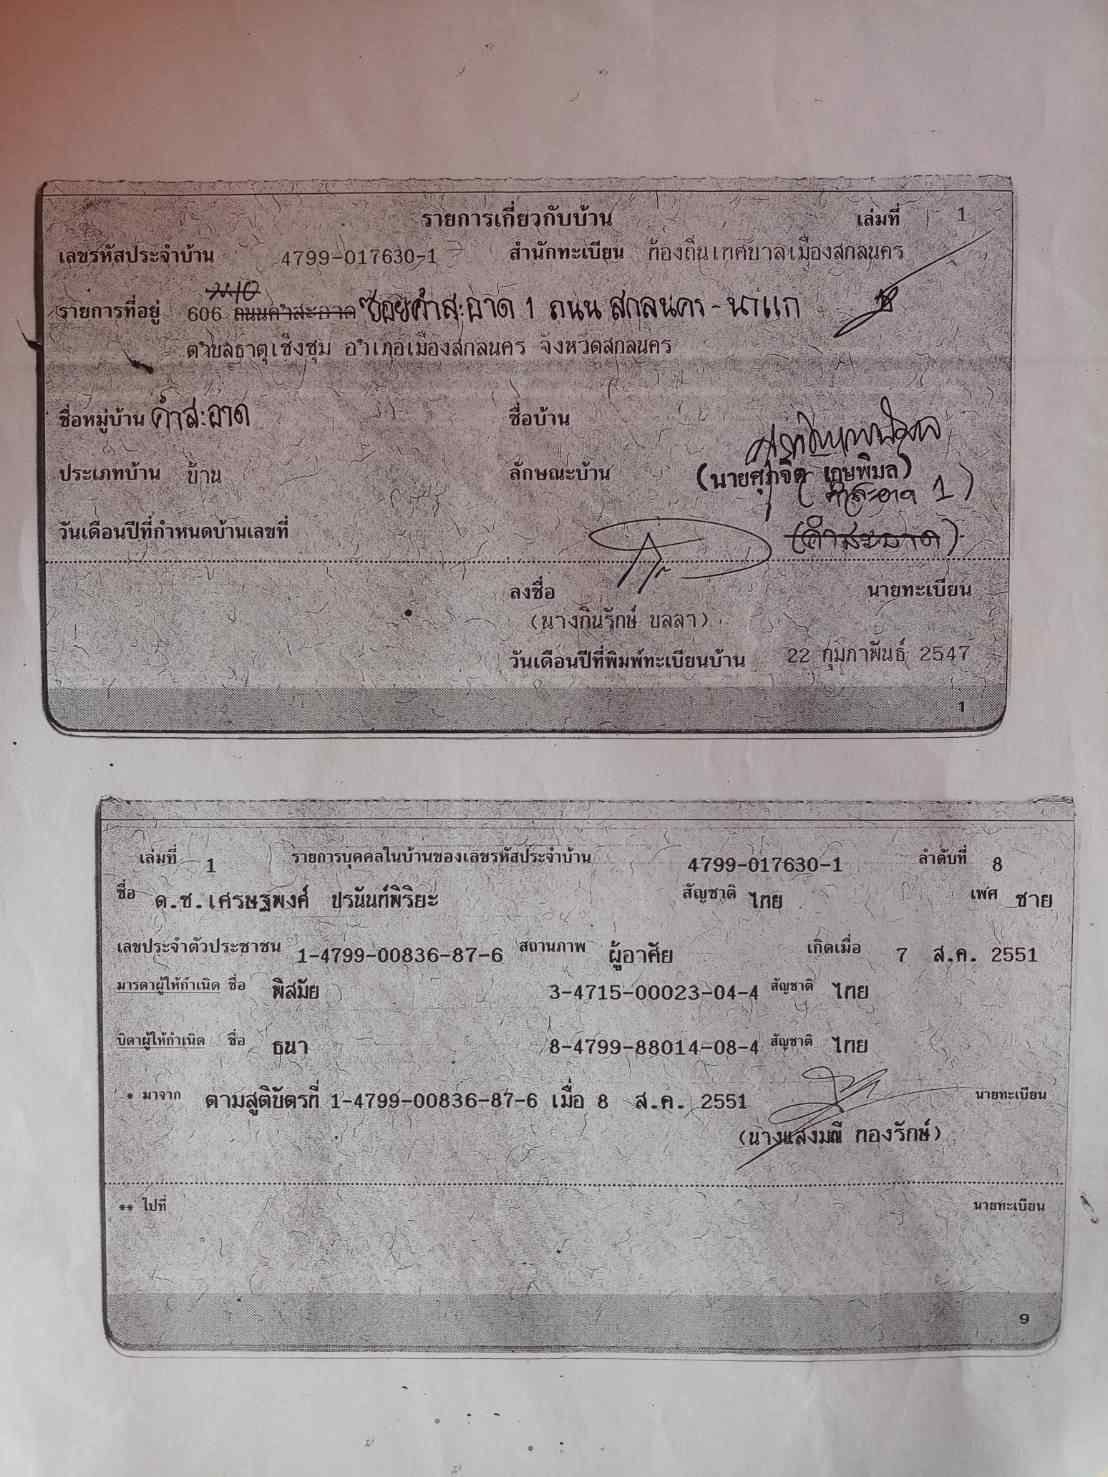 รายการเกี่ยวกับบ้าน เล่มที่ 1
เลขรหัสประจำบ้าน 4799-017630-1 สำนักทะเบียน ท้องถิ่นเทศบาลเมืองสกลนคร
รายการที่อยู่ 606 ถนนคำสะอาด ซอยคำสะอาด 1 ถนน สกลนคร - นาแก
ตำบลธาตุเชิงชุม อำเภอเมืองสกลนคร จังหวัดสกลนคร
ชื่อหมู่บ้าน คำสะอาด ชื่อบ้าน
ประเภทบ้าน บ้าน ลักษณะบ้าน (นายศุภจิต เกษพิมล)
(คำสะอาด 1)
วันเดือนปีที่กำหนดบ้านเลขที่ (คำสะอาด)
ลงชื่อ นายทะเบียน
(นางกินรักษ์ บลลา)
วันเดือนปีที่พิมพ์ทะเบียนบ้าน 22 กุมภาพันธ์ 2547
1
เล่มที่ 1 รายการบุคคลในบ้านของเลขรหัสประจำบ้าน 4799-017630-1 ลำดับที่ 8
ชื่อ ด.ช.เศรษฐพงศ์ ปรนันท์พิริยะ สัญชาติ ไทย เพศ ชาย
เลขประจำตัวประชาชน 1-4799-00836-87-6 สถานภาพ ผู้อาศัย เกิดเมื่อ 7 ส.ค. 2551
มารดาผู้ให้กำเนิด ชื่อ พิสมัย 3-4715-00023-04-4 สัญชาติ ไทย
บิดาผู้ให้กำเนิด ชื่อ ธนา 8-4799-88014-08-4 สัญชาติ ไทย
* มาจาก ตามสูติบัตรที่ 1-4799-00836-87-6 เมื่อ 8 ส.ค. 2551 นายทะเบียน
(นางแสงมณี ทองรักษ์)
** ไปที่ นายทะเบียน
9